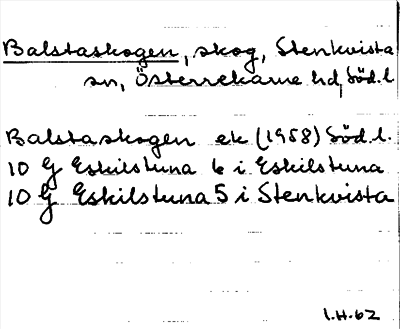 Balstaskogen, skog, Stenkvista
sn, Österrekarne hd, Söd.l.
Balstaskogen ek (1958) Söd.l.
10 G Eskilstuna 6 i Eskilstuna
10 G Eskilstuna 5 i Stenkvista
1.H.62